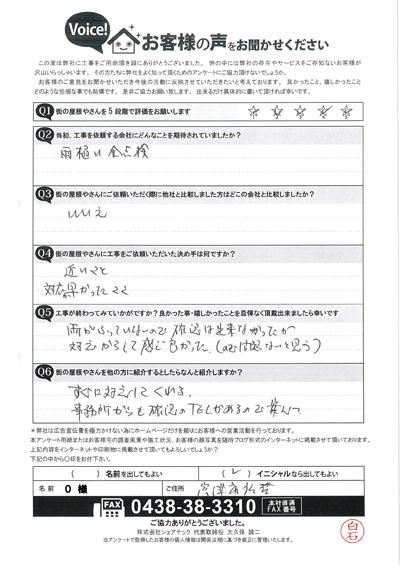 Voice!
お客様の声をお聞かせください
この度は弊社に工事をご用命頂き誠にありがとうございました。世の中には弊社の存在やサービスをご存知ないお客様が
沢山いらっしゃいます。その方たちに弊社をよく知って頂くためのアンケートにご協力頂けないでしょうか。
お客様のご意見をお聞かせいただき今後の活動に反映させていただきたいと考えております。良かったこと、嬉しかったこと
どのような些細な事でも結構です。是非ご協力お願い致します。出来るだけ具体的に書いて頂ければ幸いです。
Q1 街の屋根やさんを5段階で評価をお願いします
Q2 当初、工事を依頼する会社にどんなことを期待されていましたか?
雨樋い全点検
Q3 街の屋根やさんにご依頼いただく際に他社と比較しました方はどこの会社と比較しましたか?
いいえ
Q4 街の屋根やさんに工事をご依頼いただいた決め手は何ですか?
近いこと
対応早かったこと
Q5 工事が終わってみていかがですか?良かった事・嬉しかったことを忌憚なく頂戴出来ましたら幸いです
雨がふっていないので確認は出来なかったが
対応からして感じ良かった
Q6 街の屋根やさんを他の方に紹介するとしたらなんと紹介しますか?
すぐに対応してくれる。
事務所からも確認のTELがあるので
*弊社は広告宣伝費を極力かけない為にホームページだけを頼りにお客様への営業活動を行っております。
本アンケート用紙またはお客様宅の調査風景や施工状況、お客様の顔写真を随時ブログ形式のインターネットに掲載させて頂いております。
上記内容をインターネットや印刷物に掲載させて頂いてもよろしいでしょうか?
下記の中から〇印をお付け下さい。
( )名前を出してもよい ( )イニシャルなら出してもよい
名前 O様 ご住所
FAX 0438-38-3310 本社直通FAX番号
ご協力ありがとうございました。
株式会社シェアテック 代表取締役 大久保 誠二
当アンケートで取得したお客様の個人情報は関係法規に基づき厳正に管理いたします。
白石